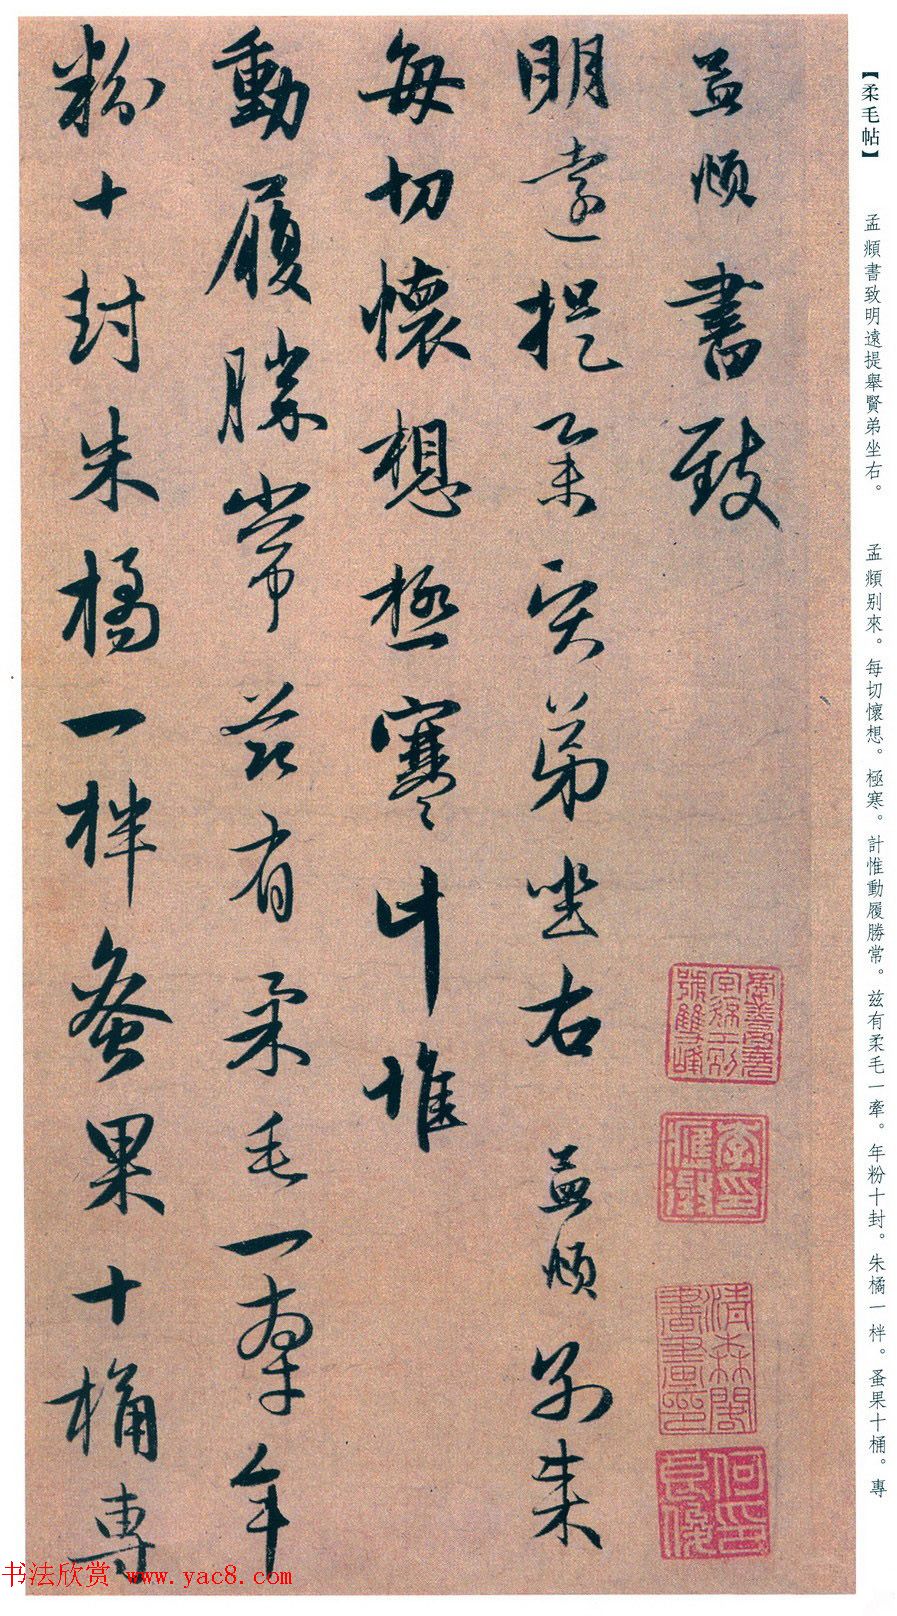 【柔毛帖】 孟頫書致明遠提舉賢弟坐右。 孟頫別來。每切懷想。極寒。計惟動履勝常。茲有柔毛一牽。年粉十封。朱橘一柈。蚤果十桶。專
孟頫書致
明遠提舉賢弟坐右 孟頫別來
每切懷想極寒計惟
動履勝常茲有柔毛一牽年
粉十封朱橘一柈蚤果十桶專
書法欣赏 www.yac8.com